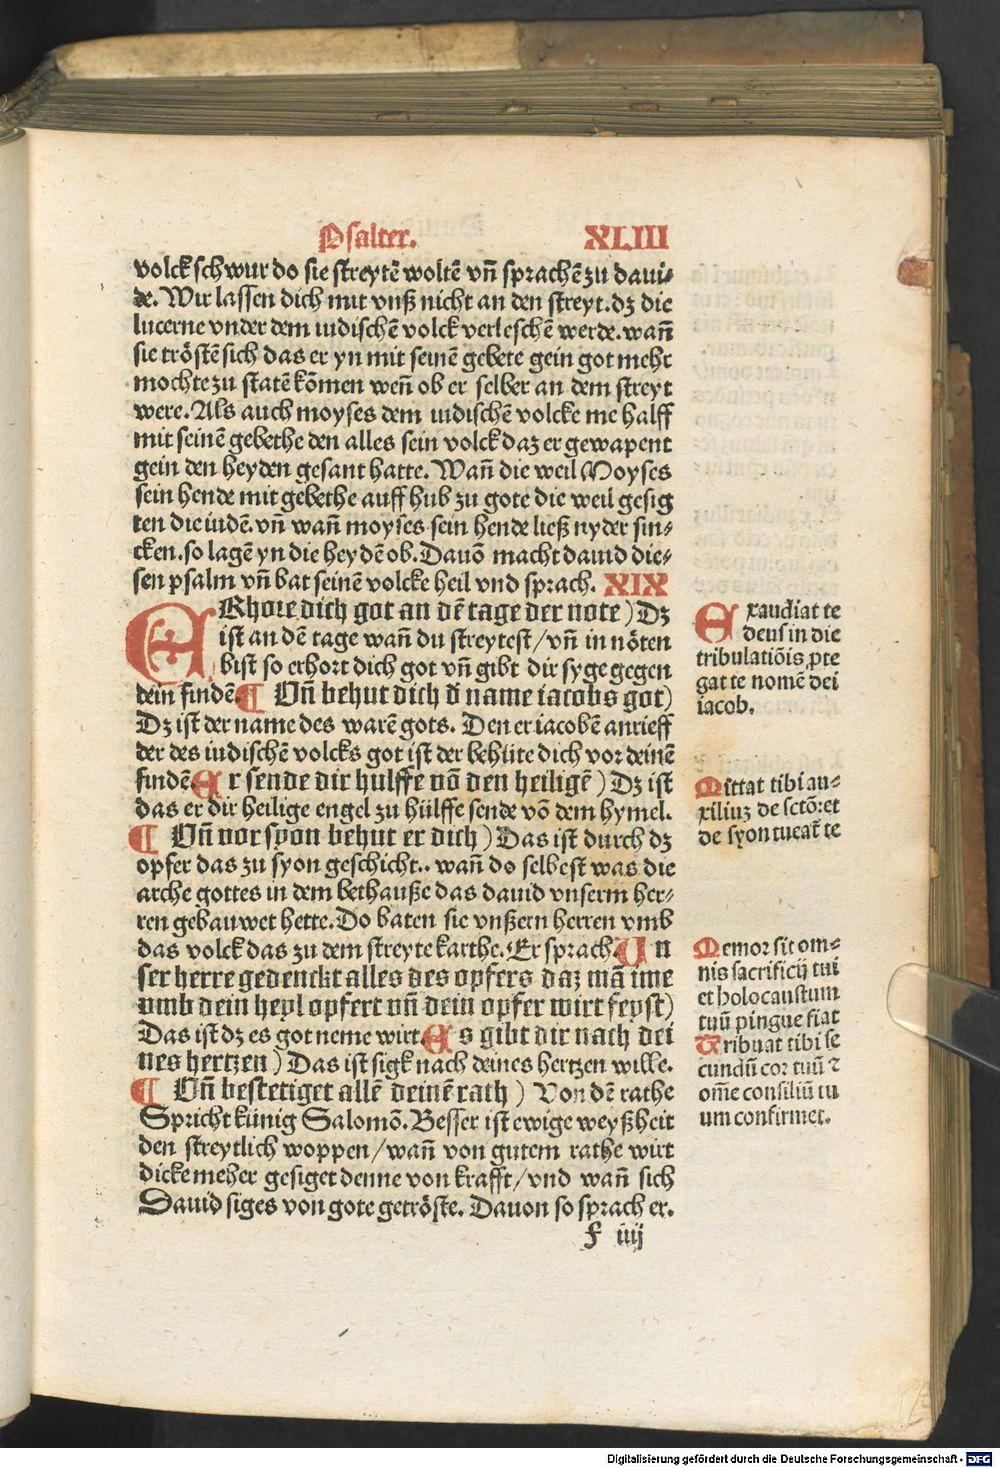 Psalter. XLIII
volck schwur do sie streytē woltē vn̄ sprachē zu daui⸗
de. Wir lassen dich mit vnß nicht an den streyt. dz die
lucerne vnder dem iudischē volck verleschē werde. wan̄
sie tröstē sich das er yn mit seinē gebete gein got meht
mochte zu statē kōmen wen̄ ob er selber an dem streyt
were. Als auch moyses dem iudischē volcke me halff
mit seinē gebethe den alles sein volck daz er gewapent
gein den heyden gesant hatte. Wan̄ die weil Moyses
sein hende mit gebethe auff hub zu gote die weil gesig
ten die iudē. vn̄ wan̄ moyses sein hende ließ nyder sin⸗
cken. so lagē yn die heydē ob. Dauō macht dauid die⸗
sen psalm vn̄ bat seinē volcke heil vnd sprach. XIX
ERhore dich got an dē tage der note) Dz
ist an dē tage wan̄ du streytest/ vn̄ in nöten
bist so erhort dich got vn̄ gibt dir syge gegen
dein findē. ¶ Vn̄ behut dich d̄ name iacobs got)
Dz ist der name des warē gots. Den er iacobē anrieff
der des iudischē volcks got ist der behüte dich vor deinē
findē Er sende dir hulffe vō den heiligē) Dz ist
das er dir heilige engel zu hülffe sende vō dem hymel.
¶ Vn̄ vor syon behut er dich) Das ist durch dz
opfer das zu syon geschicht.. wan̄ do selbest was die
arche gottes in dem bethauße das dauid vnserm her⸗
ren gebauwet hette. Do baten sie vnßern herren vmb
das volck das zu dem streyte karthe. Er sprach. Un
ser herre gedenckt alles des opfers daz mā ime
vmb dein heyl opfert vn̄ dein opfer wirt feyst)
Das ist dz es got neme wirt. Es gibt dir nach dei
nes hertzen) Das ist sigk nach deines hertzen wille.
¶ Vn̄ bestetiget allē deinē rath) Von dē rathe
Spricht künig Salomō. Besser ist ewige weyßheit
den streytlich woppen/ wan̄ von gutem rathe wirt
dicke meher gesiget denne von krafft/ vnd wan̄ sich
Dauid siges von gote getröste. Dauon so sprach er.
f iiij
Exaudiat te
deus in die
tribulatiōis ꝓte
gat te nomē dei
iacob.
Mittat tibi au⸗
xiliuz de sctō: et
de syon tueat̄ te
Memor sit om⸗
nis sacrificij tui
et holocaustum
tuū pingue fiat
Tribuat tibi se
cundū cor tuū ⁊
om̄e consiliū tu
um confirmet.
Digitalisierung gefördert durch die Deutsche Forschungsgemeinschaft - DFG